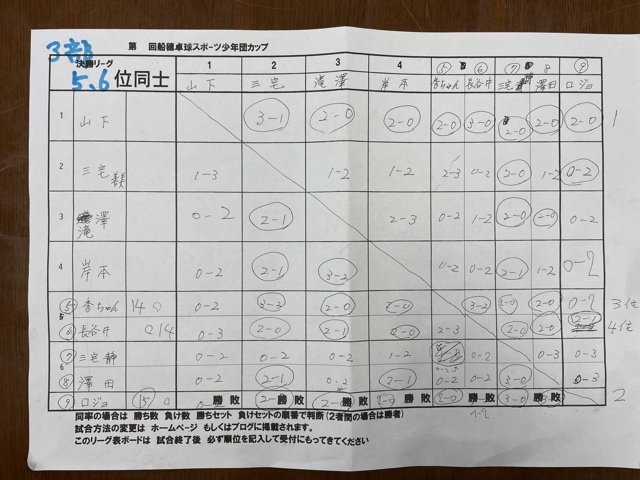 3部
第 回船穂卓球スポーツ少年団カップ
決勝リーグ
5、6位同士
1 2 3 4 ⑤ ⑥ ⑦ 8 ⑨
山下 三宅 滝澤 岸本 杏ちゃん 長谷井 三宅 澤田 ロジョ
1 山下 3-1 2-0 2-0 2-0 3-0 2-0 2-0 2-0 1
2 三宅 1-3 1-2 1-2 2-3 0-2 2-0 1-2 0-2
3 滝澤 0-2 2-1 2-3 0-2 1-2 2-0 2-0 0-2
4 岸本 0-2 2-1 3-2 0-2 0-2 2-1 1-2 0-2
⑤ 杏ちゃん 140 0-2 3-2 2-0 2-0 3-2 2-0 0-2 3位
⑥ 長谷井 014 0-3 2-0 2-1 2-0 2-3 2-0 2-0 2-1 4位
⑦ 三宅静 0-2 0-2 0-2 1-2 0-2 0-3 0-3
⑧ 澤田 0-2 2-1 0-2 2-1 0-2 0-2 3-0 0-3
⑨ ロジョ 15 0 勝敗 勝敗 勝敗 勝敗 勝敗 勝敗 勝敗 2
1-2
同率の場合は 勝ち数 負け数 勝ちセット 負けセットの順番で判断(2者間の場合は勝者)
試合方法の変更は ホームページ もしくはブログに掲載されます。
このリーグ表ボードは 試合終了後 必ず順位を記入して受付にもってきてください